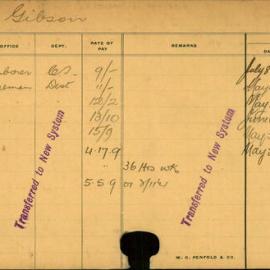 Gibson
OFFICE DEPT. RATE OF PAY REMARKS
borer C.S. 9/- July 8
reman Dist 11/- May
12/2 May
13/10
15/9 May
4.17.9 May
" 36 Hrs wk
5.5.9 or
Transferred to New System
Transferred to New System
W. C. PENFOLD & CO.